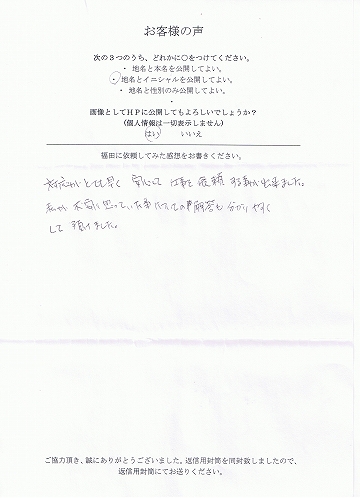 お客様の声
次の3つのうち、どれかに○をつけてください。
・ 地名と本名を公開してよい。
・ 地名とイニシャルを公開してよい。
・ 地名と性別のみ公開してよい。
・
画像としてHPに公開してもよろしいでしょうか?
(個人情報は一切表示しません)
はい いいえ
福田に依頼してみた感想をお書きください。
対応がとても早く 安心して 仕事を依頼する事が出来ました。
私が不安に思っていた事についての解答も分かりやすく
して頂けました。
ご協力頂き、誠にありがとうございました。返信用封筒を同封致しましたので、
返信用封筒にてお送りください。